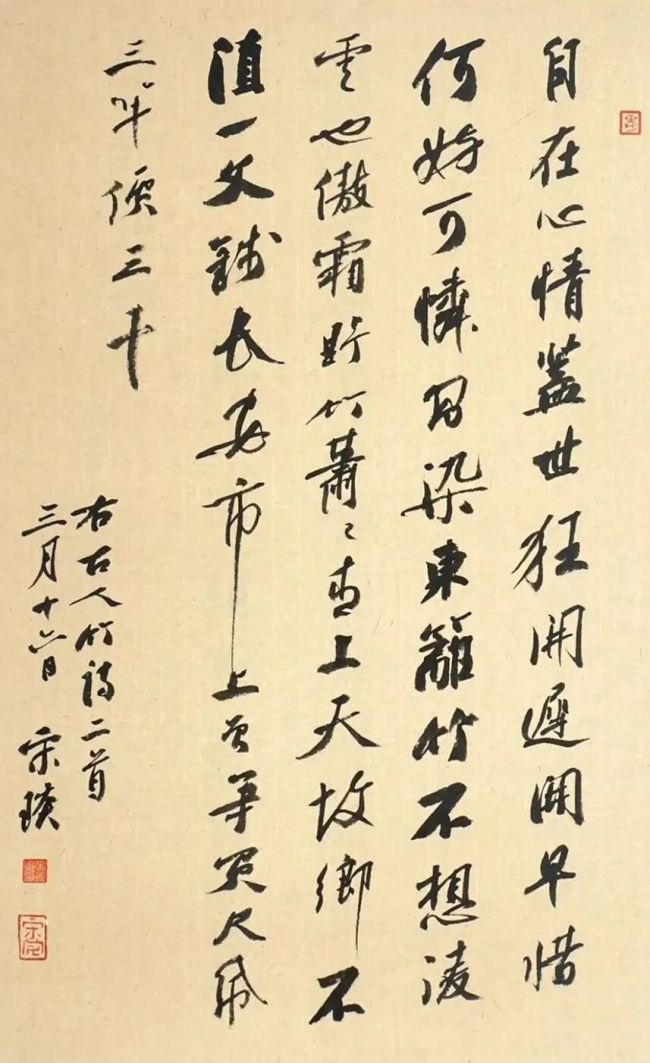 自在心情蓋世狂開遲開早惜
何妨可憐習染東籬竹不想凌
雲也傲霜野竹蕭〻直上天故鄉不
值一文錢長安市上曾爭買尺帋
三竿價三千
右古人竹詩二首
三月十六日 宋琰